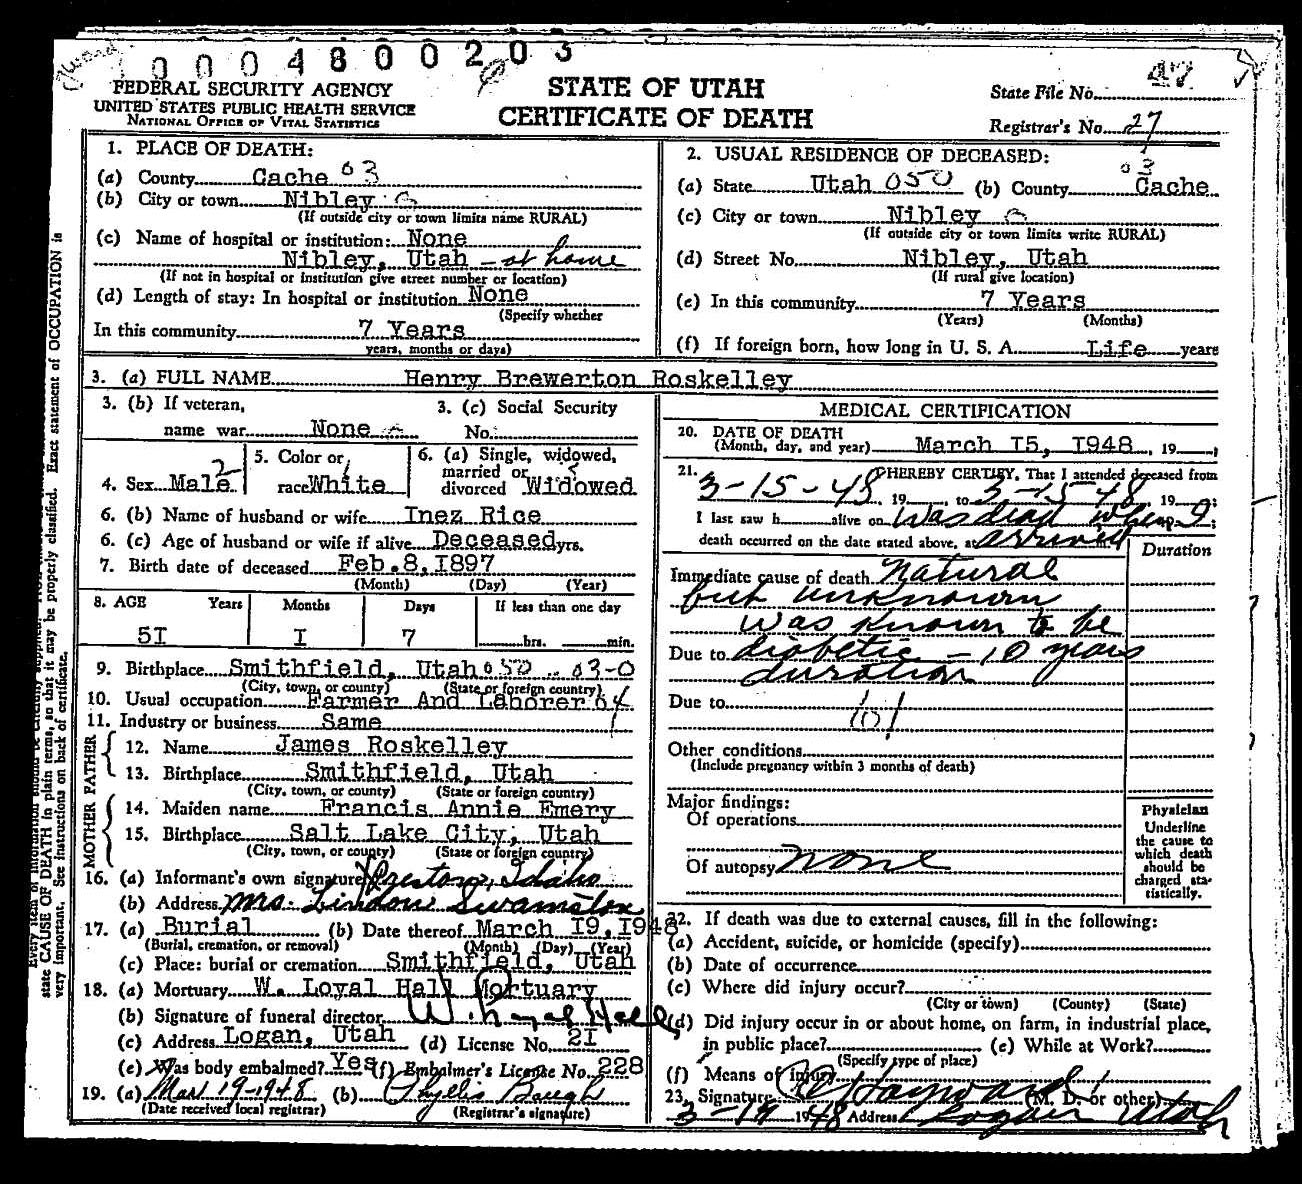 0004800203
FEDERAL SECURITY AGENCY
UNITED STATES PUBLIC HEALTH SERVICE
NATIONAL OFFICE OF VITAL STATISTICS
STATE OF UTAH
CERTIFICATE OF DEATH
State File No. 47
Registrar's No. 27
1. PLACE OF DEATH:
(a) County Cache 03
(b) City or town Nibley
(If outside city or town limits name RURAL)
(c) Name of hospital or institution: None
Nibley, Utah - at home
(If not in hospital or institution give street number or location)
(d) Length of stay: In hospital or institution None
(Specify whether
In this community 7 Years
years, months or days)
2. USUAL RESIDENCE OF DECEASED:
03
(a) State Utah 050 (b) County Cache
(c) City or town Nibley
(If outside city or town limits write RURAL)
(d) Street No. Nibley, Utah
(If rural give location)
(e) In this community 7 Years
(Years) (Months)
(f) If foreign born, how long in U. S. A. Life years
3. (a) FULL NAME Henry Brewerton Roskelley
3. (b) If veteran,
name war None
3. (c) Social Security
No.
4. Sex Male 2
5. Color or
race White
6. (a) Single, widowed,
married or
divorced Widowed
6. (b) Name of husband or wife Inez Rice
6. (c) Age of husband or wife if alive Deceased yrs.
7. Birth date of deceased Feb.8,I897
(Month) (Day) (Year)
8. AGE Years Months Days If less than one day
5I I 7 hrs. min.
9. Birthplace Smithfield, Utah 050 03-0
(City, town, or county) (State or foreign country)
10. Usual occupation Farmer And Laborer
11. Industry or business Same
FATHER
12. Name James Roskelley
13. Birthplace Smithfield, Utah
(City, town, or county) (State or foreign country)
MOTHER
14. Maiden name Francis Annie Emery
15. Birthplace Salt Lake City, Utah
(City, town, or county) (State or foreign country)
16. (a) Informant's own signature Preston, Idaho
(b) Address Mrs. Lindow Swanston
17. (a) Burial (b) Date thereof March I9,I948
(Burial, cremation, or removal) (Month) (Day) (Year)
(c) Place: burial or cremation Smithfield, Utah
18. (a) Mortuary W. Loyal Hall Mortuary
(b) Signature of funeral director W. Loyal Hall
(c) Address Logan, Utah (d) License No. 2I
(e) Was body embalmed? Yes (f) Embalmer's License No. 228
19. (a) Mar 19-1948 (b) Phyllis Baugh
(Date received local registrar) (Registrar's signature)
MEDICAL CERTIFICATION
20. DATE OF DEATH
(Month, day, and year) March I5, I948, 19
21. I HEREBY CERTIFY, That I attended deceased from
3-15-48, 19 , to 3-15-48, 19 ;
I last saw h alive on Was dead when I
death occurred on the date stated above, at arrived m.
Duration
Immediate cause of death Natural
but unknown
was known to be
Due to diabetic - 10 years
duration
Due to
Other conditions
(Include pregnancy within 3 months of death)
Major findings:
Of operations
Of autopsy none
Physician
Underline
the cause to
which death
should be
charged sta-
tistically.
22. If death was due to external causes, fill in the following:
(a) Accident, suicide, or homicide (specify)
(b) Date of occurrence
(c) Where did injury occur?
(City or town) (County) (State)
(d) Did injury occur in or about home, on farm, in industrial place,
in public place? (e) While at Work?
(Specify type of place)
(f) Means of injury
23. Signature Hayward (M. D. or other)
3-19 1948 Address Logan Utah
state CAUSE OF DEATH in plain terms, so that it may be properly classified. Exact statement of OCCUPATION is
very important. See instructions on back of certificate.